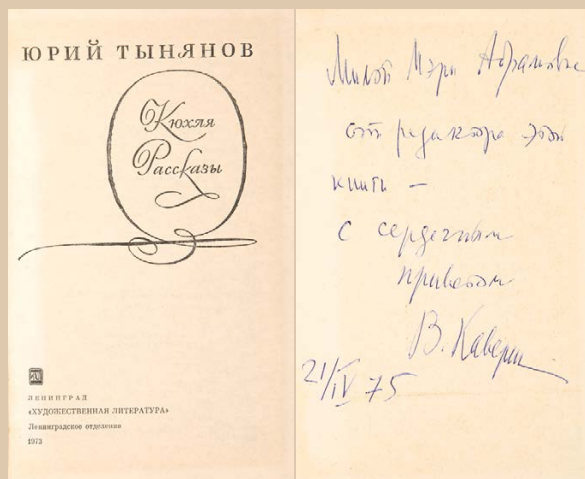 ЮРИЙ ТЫНЯНОВ
Кюхля
Рассказы
ЛЕНИНГРАД
«ХУДОЖЕСТВЕННАЯ ЛИТЕРАТУРА»
Ленинградское отделение
1973
Милой Мэри Абрамовне
от редактора этой
книги —
с сердечным
приветом
В. Каверин
21/IV 75